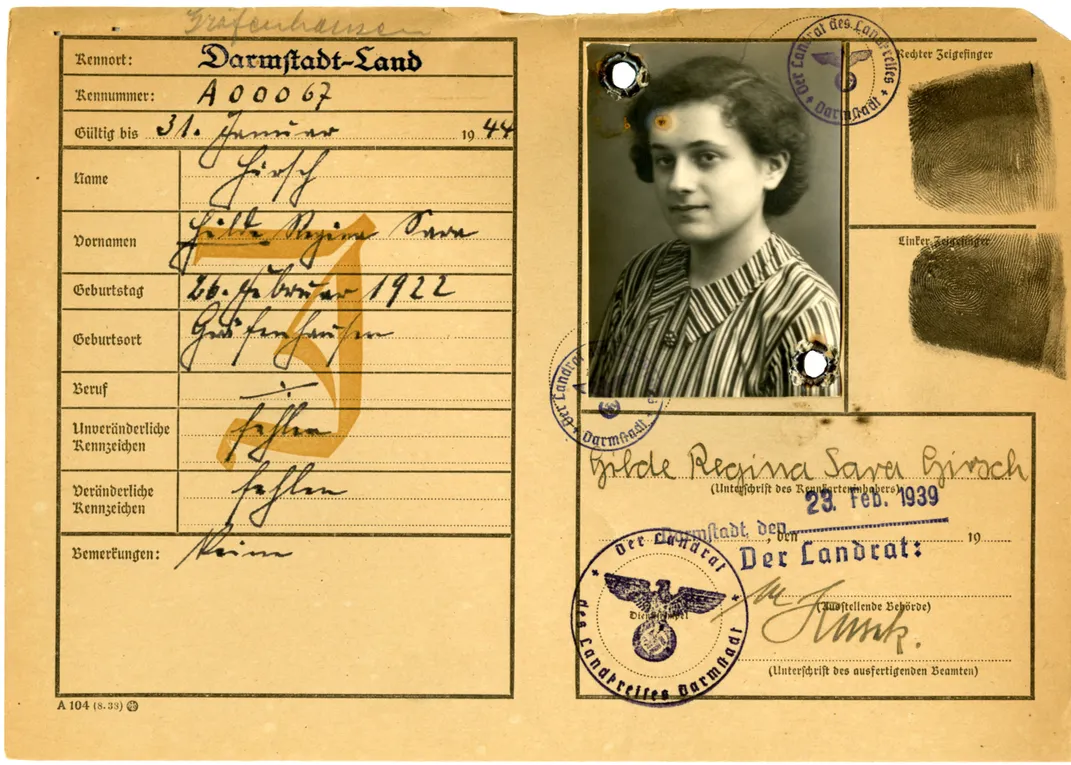 Gräfenhausen
Kennort: Darmstadt-Land
Kennummer: A00067
Gültig bis 31. Januar 1944
Name Hirsch
Vornamen Hilde Regina Sara
Geburtstag 26. Februar 1922
Geburtsort Gräfenhausen
Beruf ./.
Unveränderliche Kennzeichen fehlen
Veränderliche Kennzeichen fehlen
Bemerkungen: Keine
J
A 104 (8. 38)
Der Landrat des Landkreises
Darmstadt
Rechter Zeigefinger
Linker Zeigefinger
Der Landrat
Darmstadt
Hilde Regina Sara Hirsch
(Unterschrift des Kennkarteninhabers)
23. Feb. 1939
Darmstadt, den , den 19
Der Landrat:
(Ausstellende Behörde)
Dienststempel
Der Landrat
des Landkreises Darmstadt
(Unterschrift des ausfertigenden Beamten)